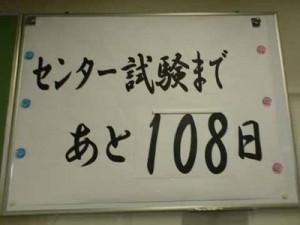 センター試験まで
あと108日